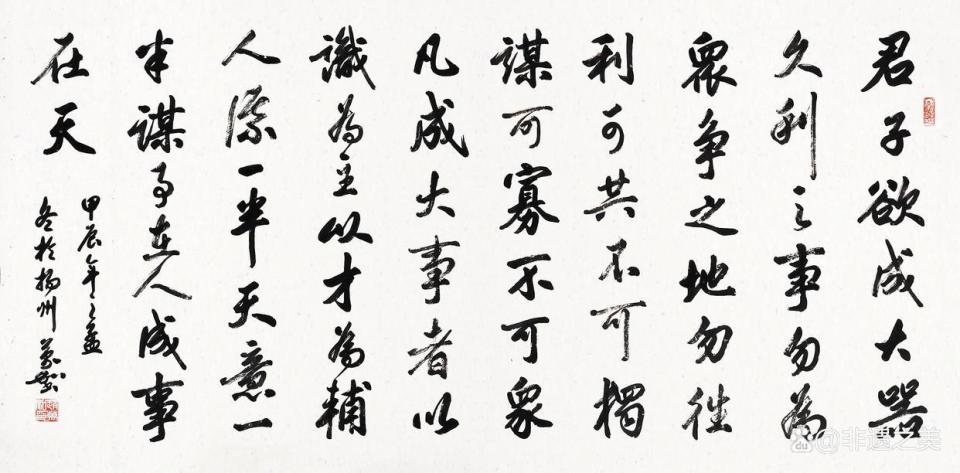 君子欲成大器
久利之事勿為
眾争之地勿往
利可共不可獨
謀可寡不可眾
凡成大事者以
識為主以才為輔
人一半天意一
半謀事在人成事
在天
甲辰年之孟
冬於揚州
@非遗之美